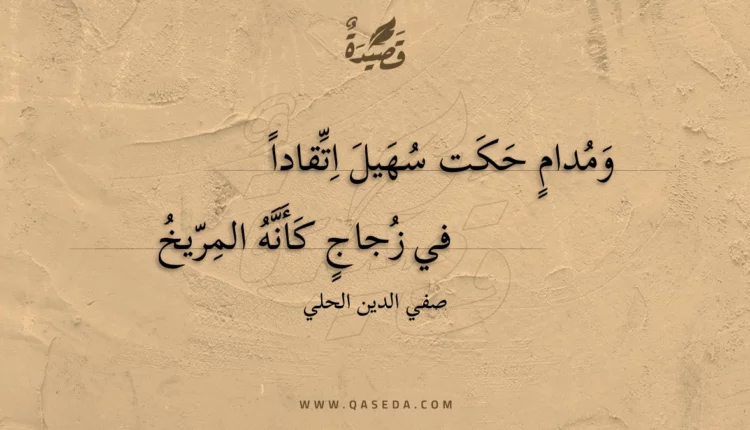 قَصِيْدَةٌ
وَمُدامٍ حَكَت سُهَيلَ اِتِّقاداً
في زُجاجٍ كَأَنَّهُ المِرّيخُ
صفي الدين الحلي
WWW.QASEDA.COM